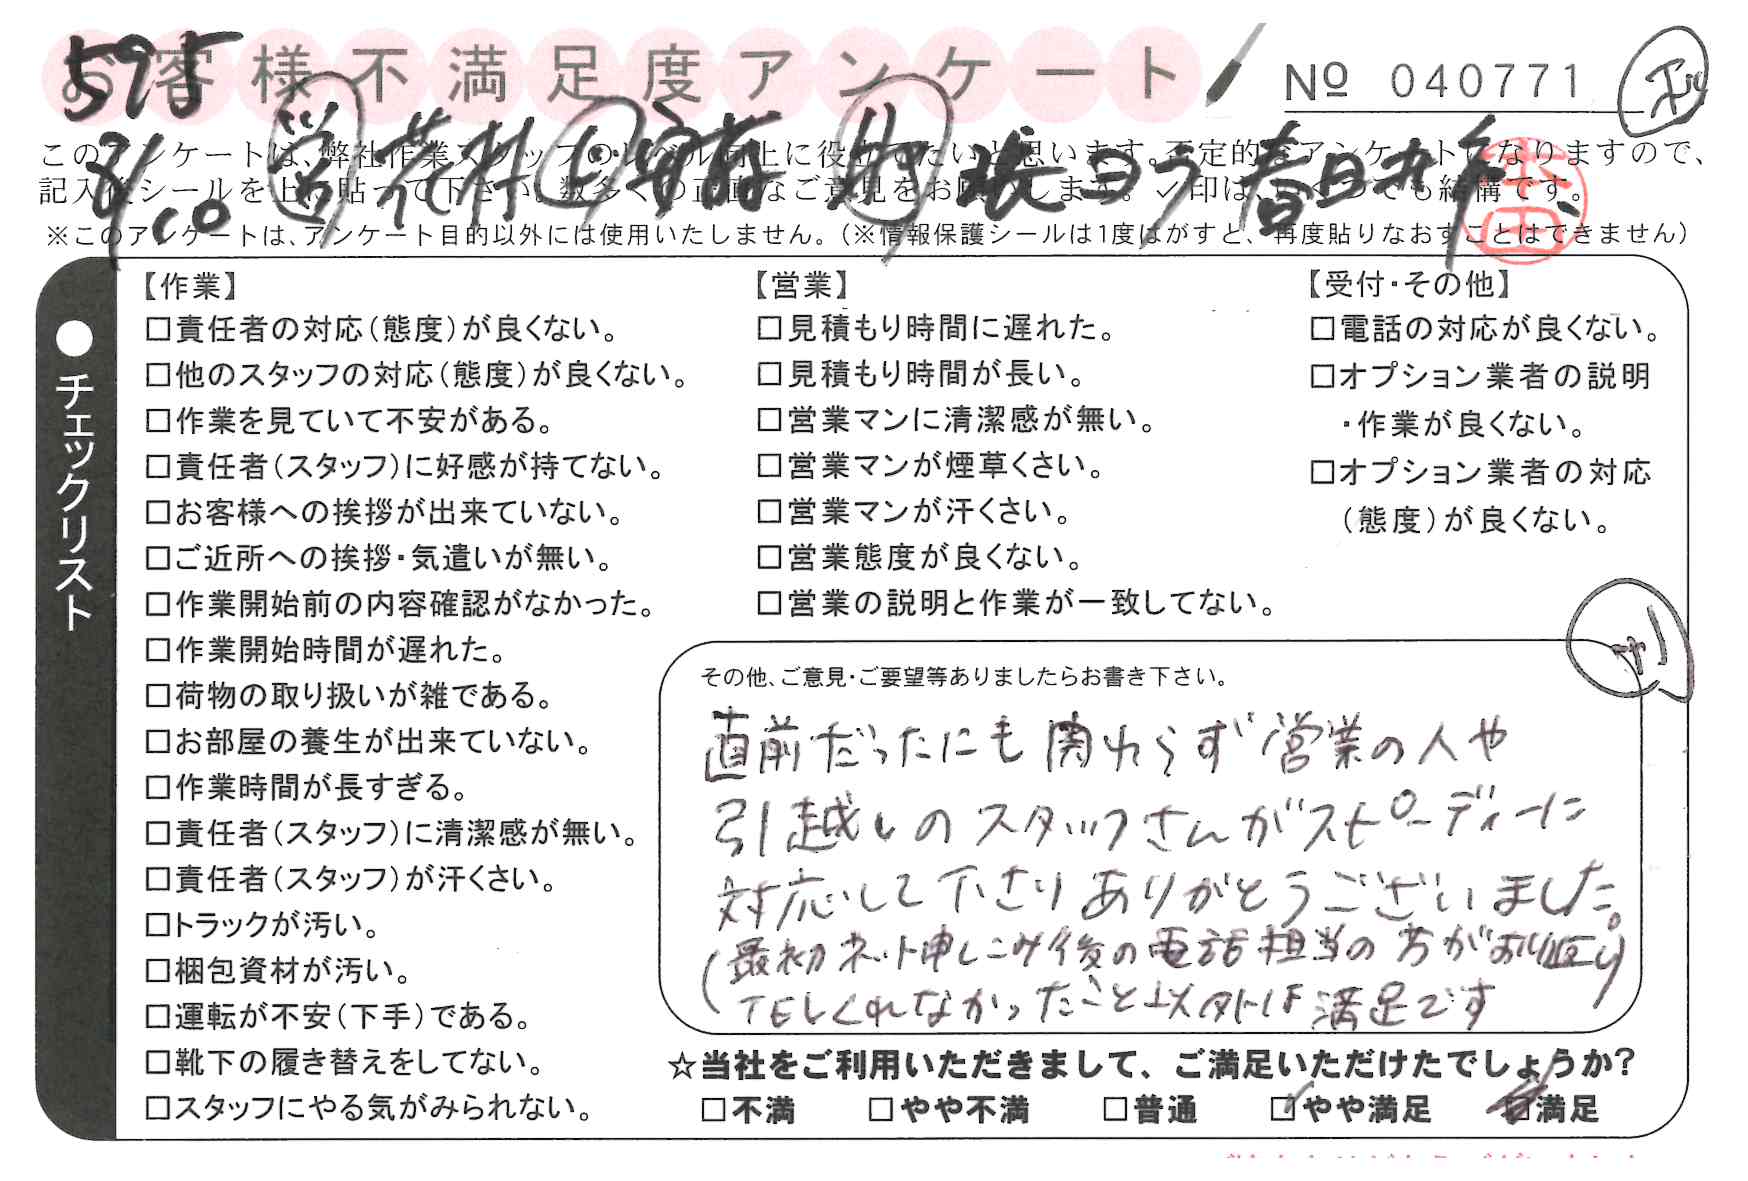 お客様不満足度アンケート
№ 040771
595
8/10
このアンケートは、弊社作業スタッフのレベル向上に役立てたいと思います。否定的なアンケートになりますので、
記入後シールを上に貼って下さい。数多くの正直なご意見をお願いします。✓印は、いくつでも結構です。
※このアンケートは、アンケート目的以外には使用いたしません。（※情報保護シールは1度はがすと、再度貼りなおすことはできません）
●チェックリスト
【作業】
□責任者の対応（態度）が良くない。
□他のスタッフの対応（態度）が良くない。
□作業を見ていて不安がある。
□責任者（スタッフ）に好感が持てない。
□お客様への挨拶が出来ていない。
□ご近所への挨拶・気遣いが無い。
□作業開始前の内容確認がなかった。
□作業開始時間が遅れた。
□荷物の取り扱いが雑である。
□お部屋の養生が出来ていない。
□作業時間が長すぎる。
□責任者（スタッフ）に清潔感が無い。
□責任者（スタッフ）が汗くさい。
□トラックが汚い。
□梱包資材が汚い。
□運転が不安（下手）である。
□靴下の履き替えをしてない。
□スタッフにやる気がみられない。
【営業】
□見積もり時間に遅れた。
□見積もり時間が長い。
□営業マンに清潔感が無い。
□営業マンが煙草くさい。
□営業マンが汗くさい。
□営業態度が良くない。
□営業の説明と作業が一致してない。
【受付・その他】
□電話の対応が良くない。
□オプション業者の説明
・作業が良くない。
□オプション業者の対応
（態度）が良くない。
その他、ご意見・ご要望等ありましたらお書き下さい。
直前だったにも関わらず営業の人や
引越しのスタッフさんがスピーディーに
対応して下さりありがとうございました。
（最初ネット申しこみ後の電話担当の方がおり返し
TELくれなかったこと以外は満足です）
☆当社をご利用いただきまして、ご満足いただけたでしょうか？
□不満 □やや不満 □普通 ☑やや満足 ☑満足